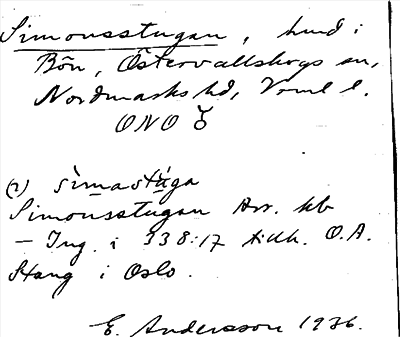 Simonsstugan, hmd i
Bön, Östervallskogs sn,
Nordmarks hd, Vrml l.
ONO
(2) sìmastúga
Simonsstugan Arr. kb
— Ing. i 338:17 tillh. O.A.
Stang i Oslo.
E. Andersson 1936.